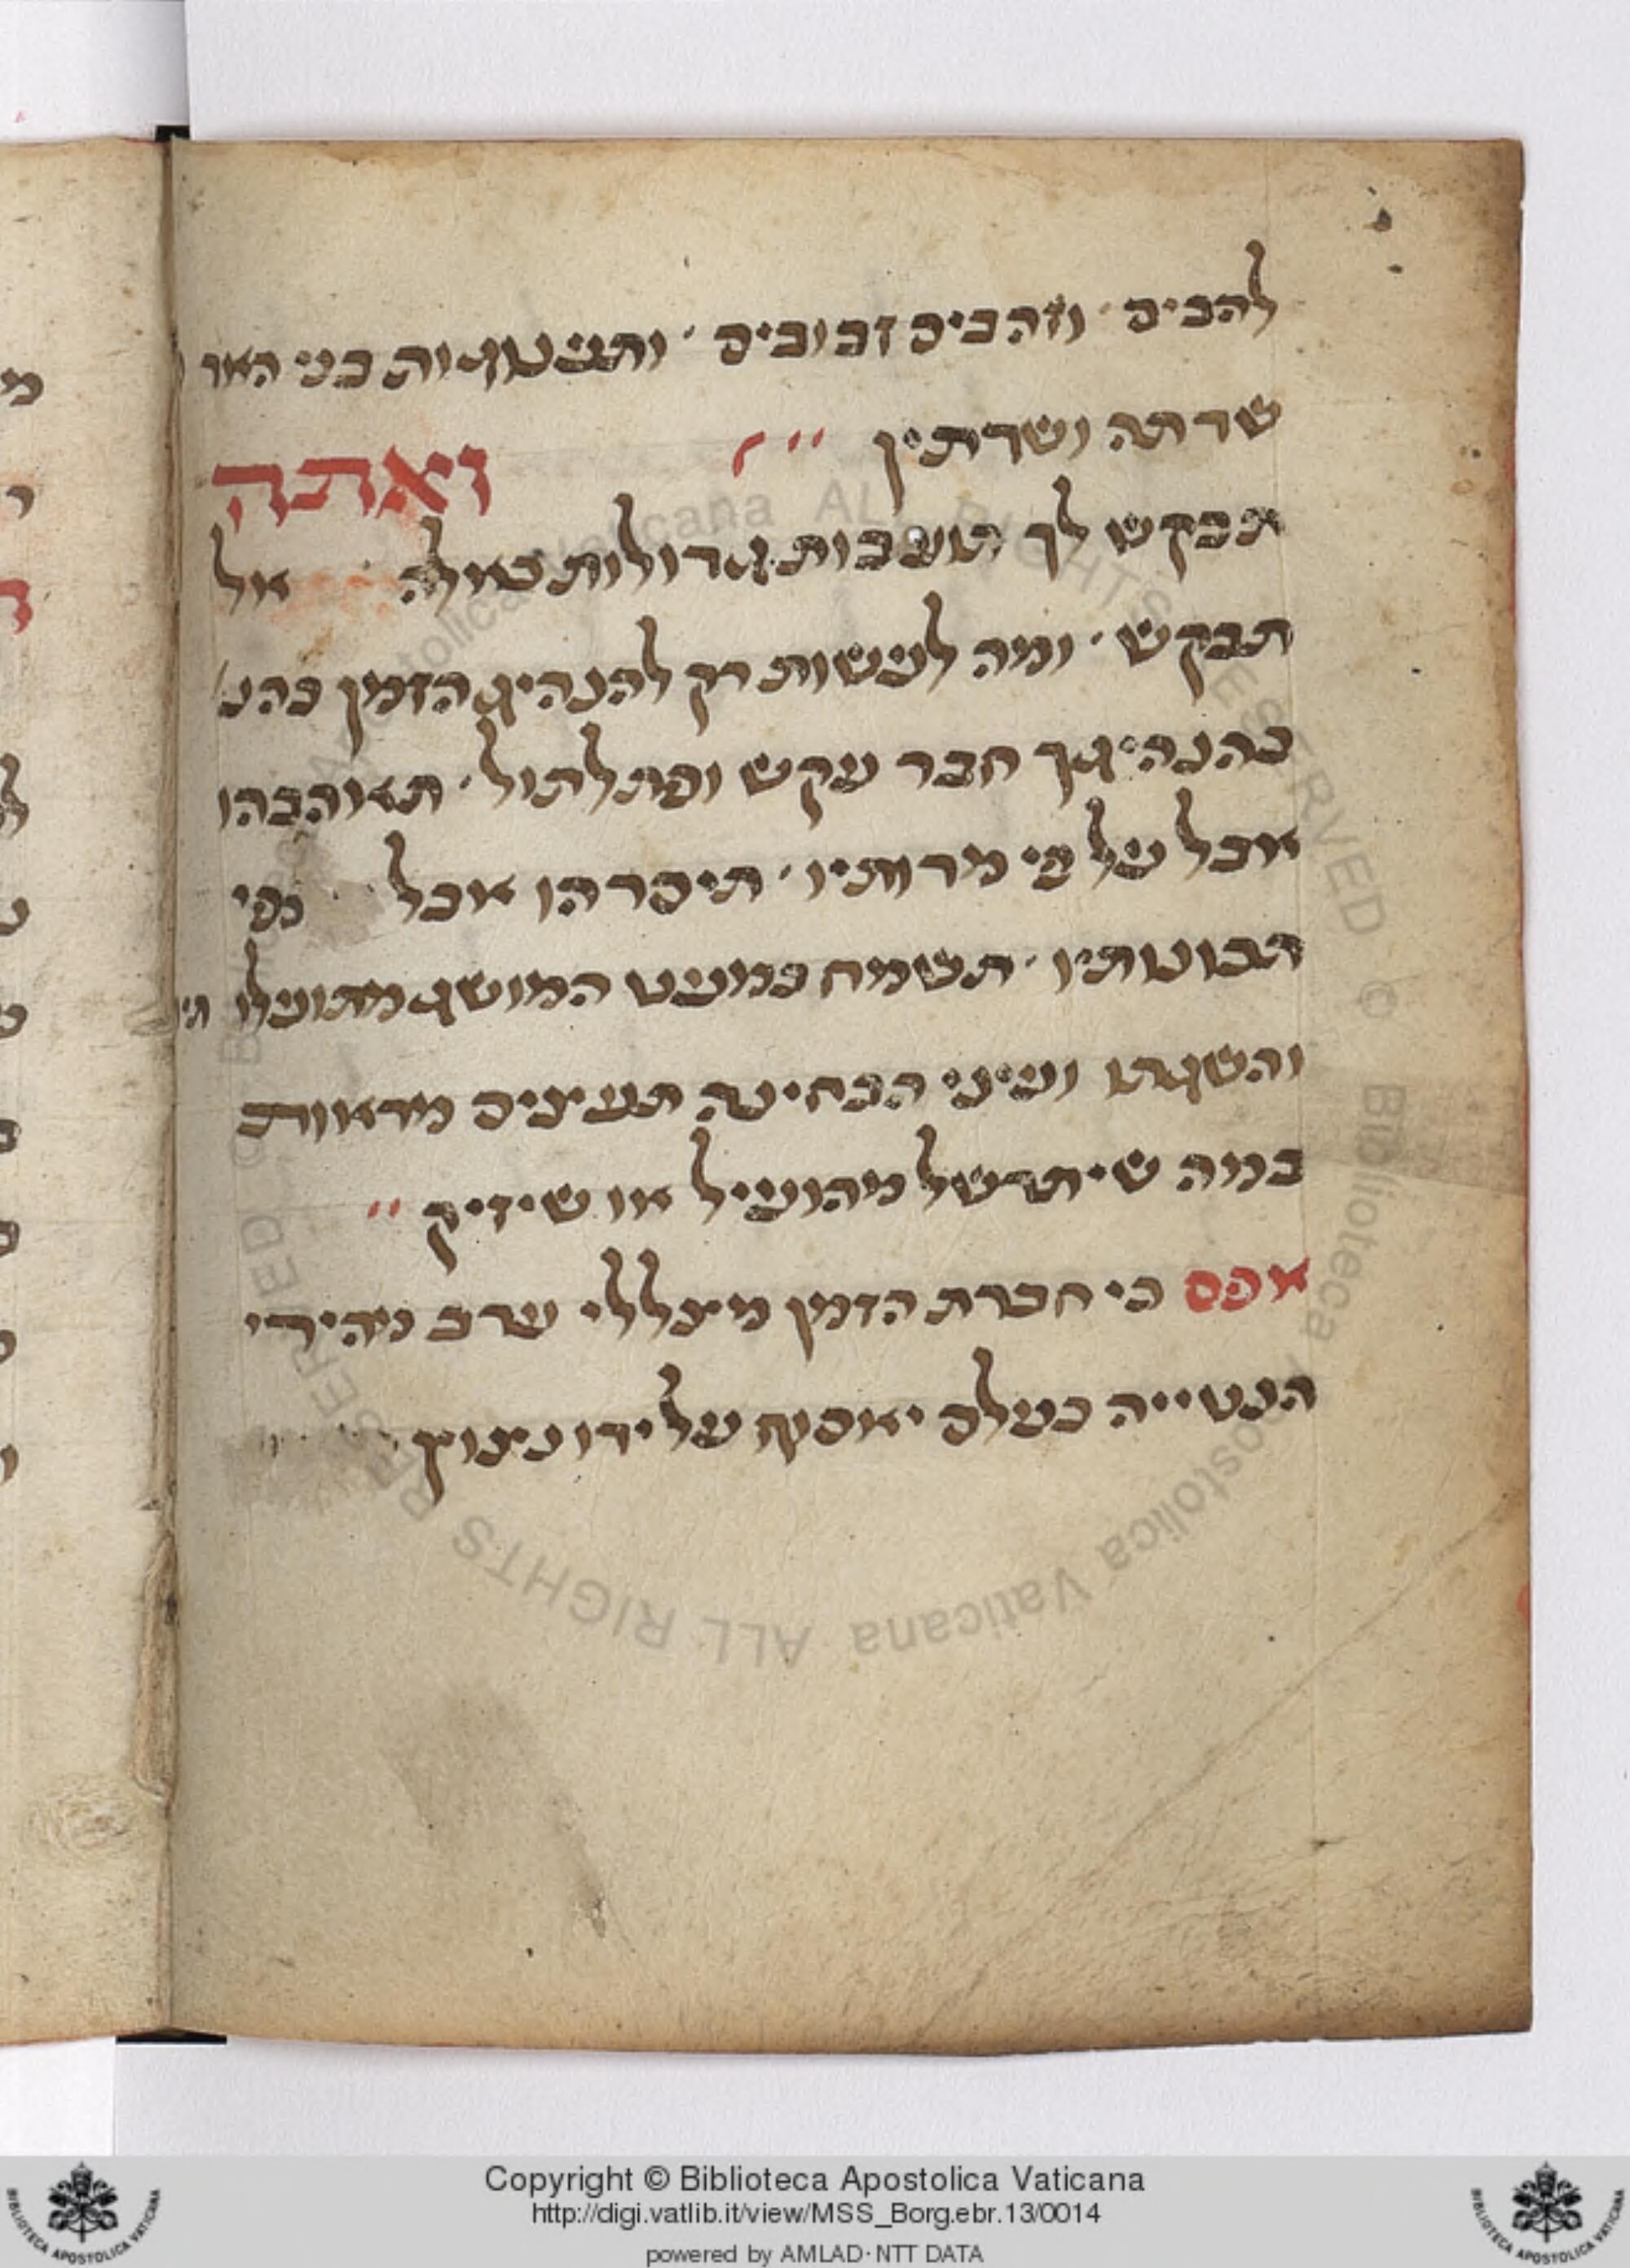 להבים וזהבים זבובים ותענוגות בני האד
שדתה ושדתין ואתה
תבקש לך טובות גדולות כאלה אל
תבקש ומה לעשות רק להנהיג הזמן כהנ
כהנהיגך חבר עקש ופתלתול תאוהבהו
אבל על פי מדותיו תיסרהו אבל כפי
תבונותיו תשמח במעט המושג מתועלו
ועיני הבחינה תעצים מראות
במה שיתרשל מהועיל או שיזיק
אפס כי חברת הזמן מצללי ערב
הנטייה על ידו ניצוץ
Copyright © Biblioteca Apostolica Vaticana
http://digi.vatlib.it/view/MSS_Borg.ebr.13/0014
powered by AMLAD·NTT DATA